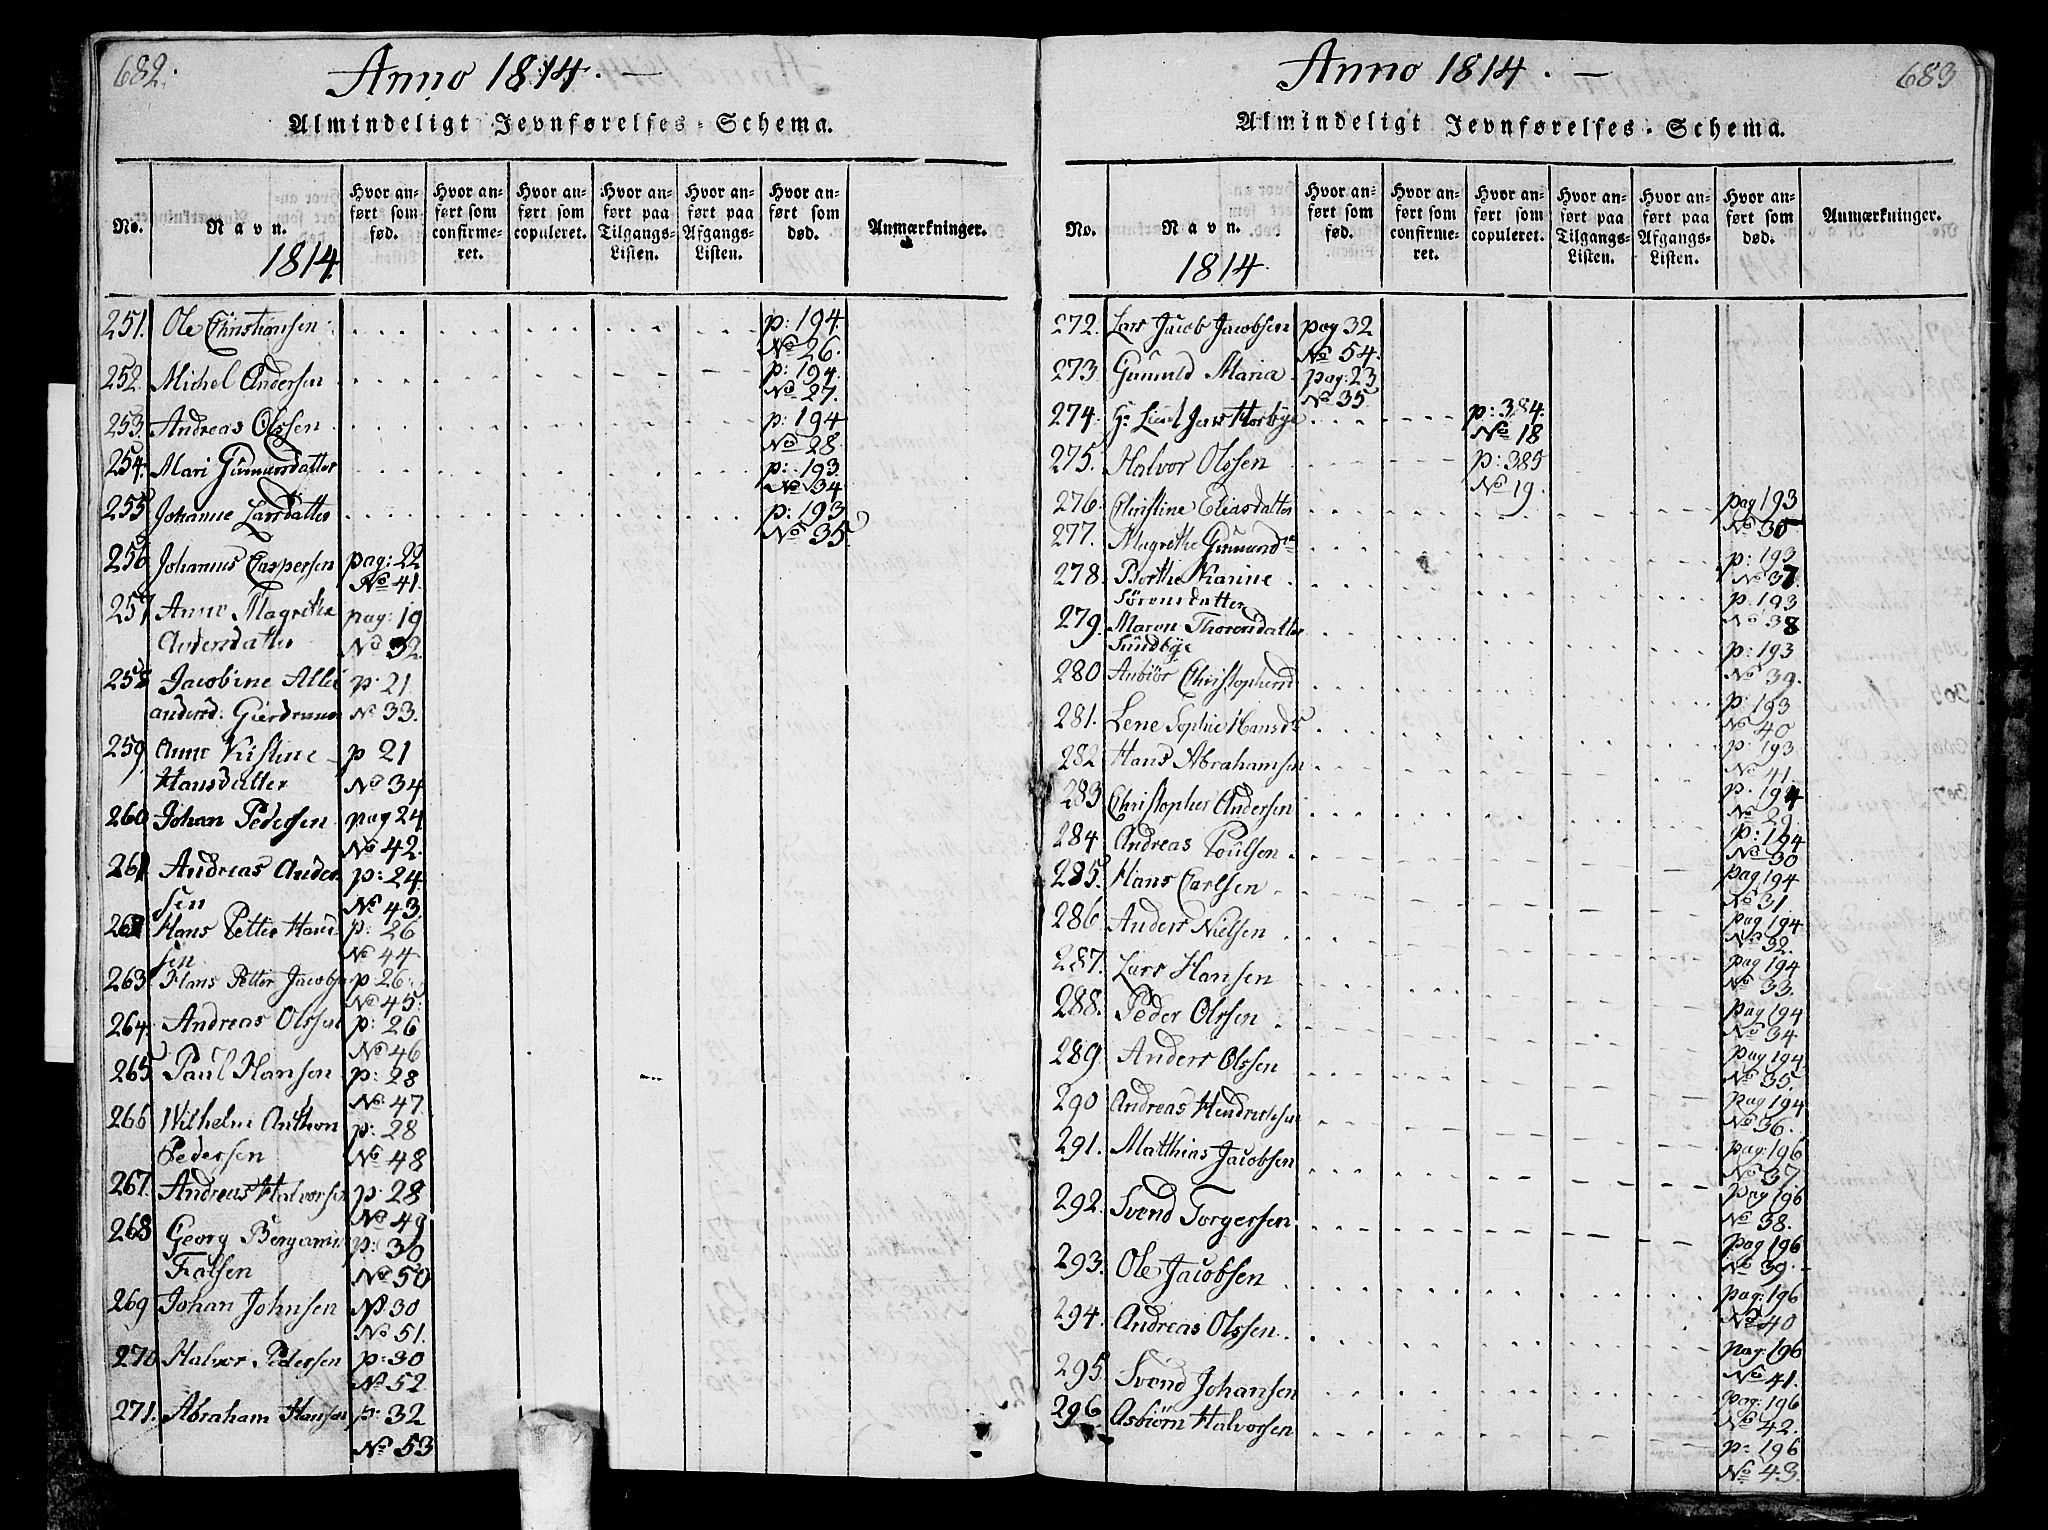 682.
Anno 1814. —
Almindeligt Jevnførelses-Schema.
No.
Navn.
1814
Hvor anført som fød.
Hvor anført som confirmeret.
Hvor anført som copuleret.
Hvor anført paa Tilgangs-Listen.
Hvor anført paa Afgangs-Listen.
Hvor anført som død.
Anmærkninger.
251. Ole Christiansen p: 194. No 26.
252. Michel Andersen p: 194. No 27.
253. Andreas Olssen p: 194 No 28.
254. Mari Gumunsdatter p: 193. No 34
255 Johanne Larsdatter p: 193 No 35.
256 Johannes Caspersen pag: 22 No 41.
257 Anne Magrethe pag: 19
Andersdatter No 32.
258 Jacobine Allex p: 21
andersd: Gierdrum No 33.
259 Anne Kistine p 21
Hansdatter No 34
260 Johan Pedersen pag 24 No 42.
261 Andreas Ander p: 24
sen No 43.
262 Hans Petter Hand p: 26
sen No 44
263 Hans Petter Jacobsen p 26. No 45.
264. Andreas Olssen p: 26 No 46
265 Paul Hansen p: 28 No 47.
266 Wilhelm Anthon p: 28
Pedersen No 48
267. Andreas Halvorsen p: 28 No 49
268 Georg Benjamin p: 30
Falsen No 50
269 Johan Johnsen No 30 No 51.
270 Halvor Pedersen p: 30 No 52
271. Abraham Hansen p: 32 No 53
683
Anno 1814. —
Almindeligt Jevnførelses-Schema.
No.
Navn.
1814.
Hvor anført som fød.
Hvor anført som confirmeret.
Hvor anført som copuleret.
Hvor anført paa Tilgangs-Listen.
Hvor anført paa Afgangs-Listen.
Hvor anført som død.
Anmærkninger.
272. Lars Jacob Jacobsen pag 32 No 54.
273 Gunnild Maria pag: 23 No 35
274. Hr Lieut Jens p: 384. No 18
275. Halvor Olssen p: 385 No 19.
276. Christine Eliasdatter pag 193 No 36
277. Magrethe Gumund p: 193 No 37
278. Borthe Karine p: 193
Sørensdatter No 38
279. Maren Thorersdatter p: 193
Sundbye No 39.
280 Anbiør Christophersd p: 193 No 40
281. Lene Sophie Hansdr p: 193 No 41.
282 Hans Abrahamsen p. 194 No 29.
283 Christopher Andersen p: 194 No 30
284 Andreas Poulsen pag 194 No 31
285. Hans Carlsen pag 194 No 32.
286 Anders Nielsen pag 194 No 33.
287. Lars Hansen pag 194 No 34
288. Peder Olssen pag 194. No 35.
289. Anders Olssen pag 194 No 36.
290 Andreas Hendrichsen pag: 196 No 37.
291. Matthias Jacobsen pag 196 No 38.
292. Svend Torgersen pag 196 No 39.
293. Ole Jacobsen pag: 196 No 40
294. Andreas Olssen. pag: 196 No 41.
295. Svend Johansen pag: 196 No 42.
296 Asbiørn Halvorsen p: 196 No 43.